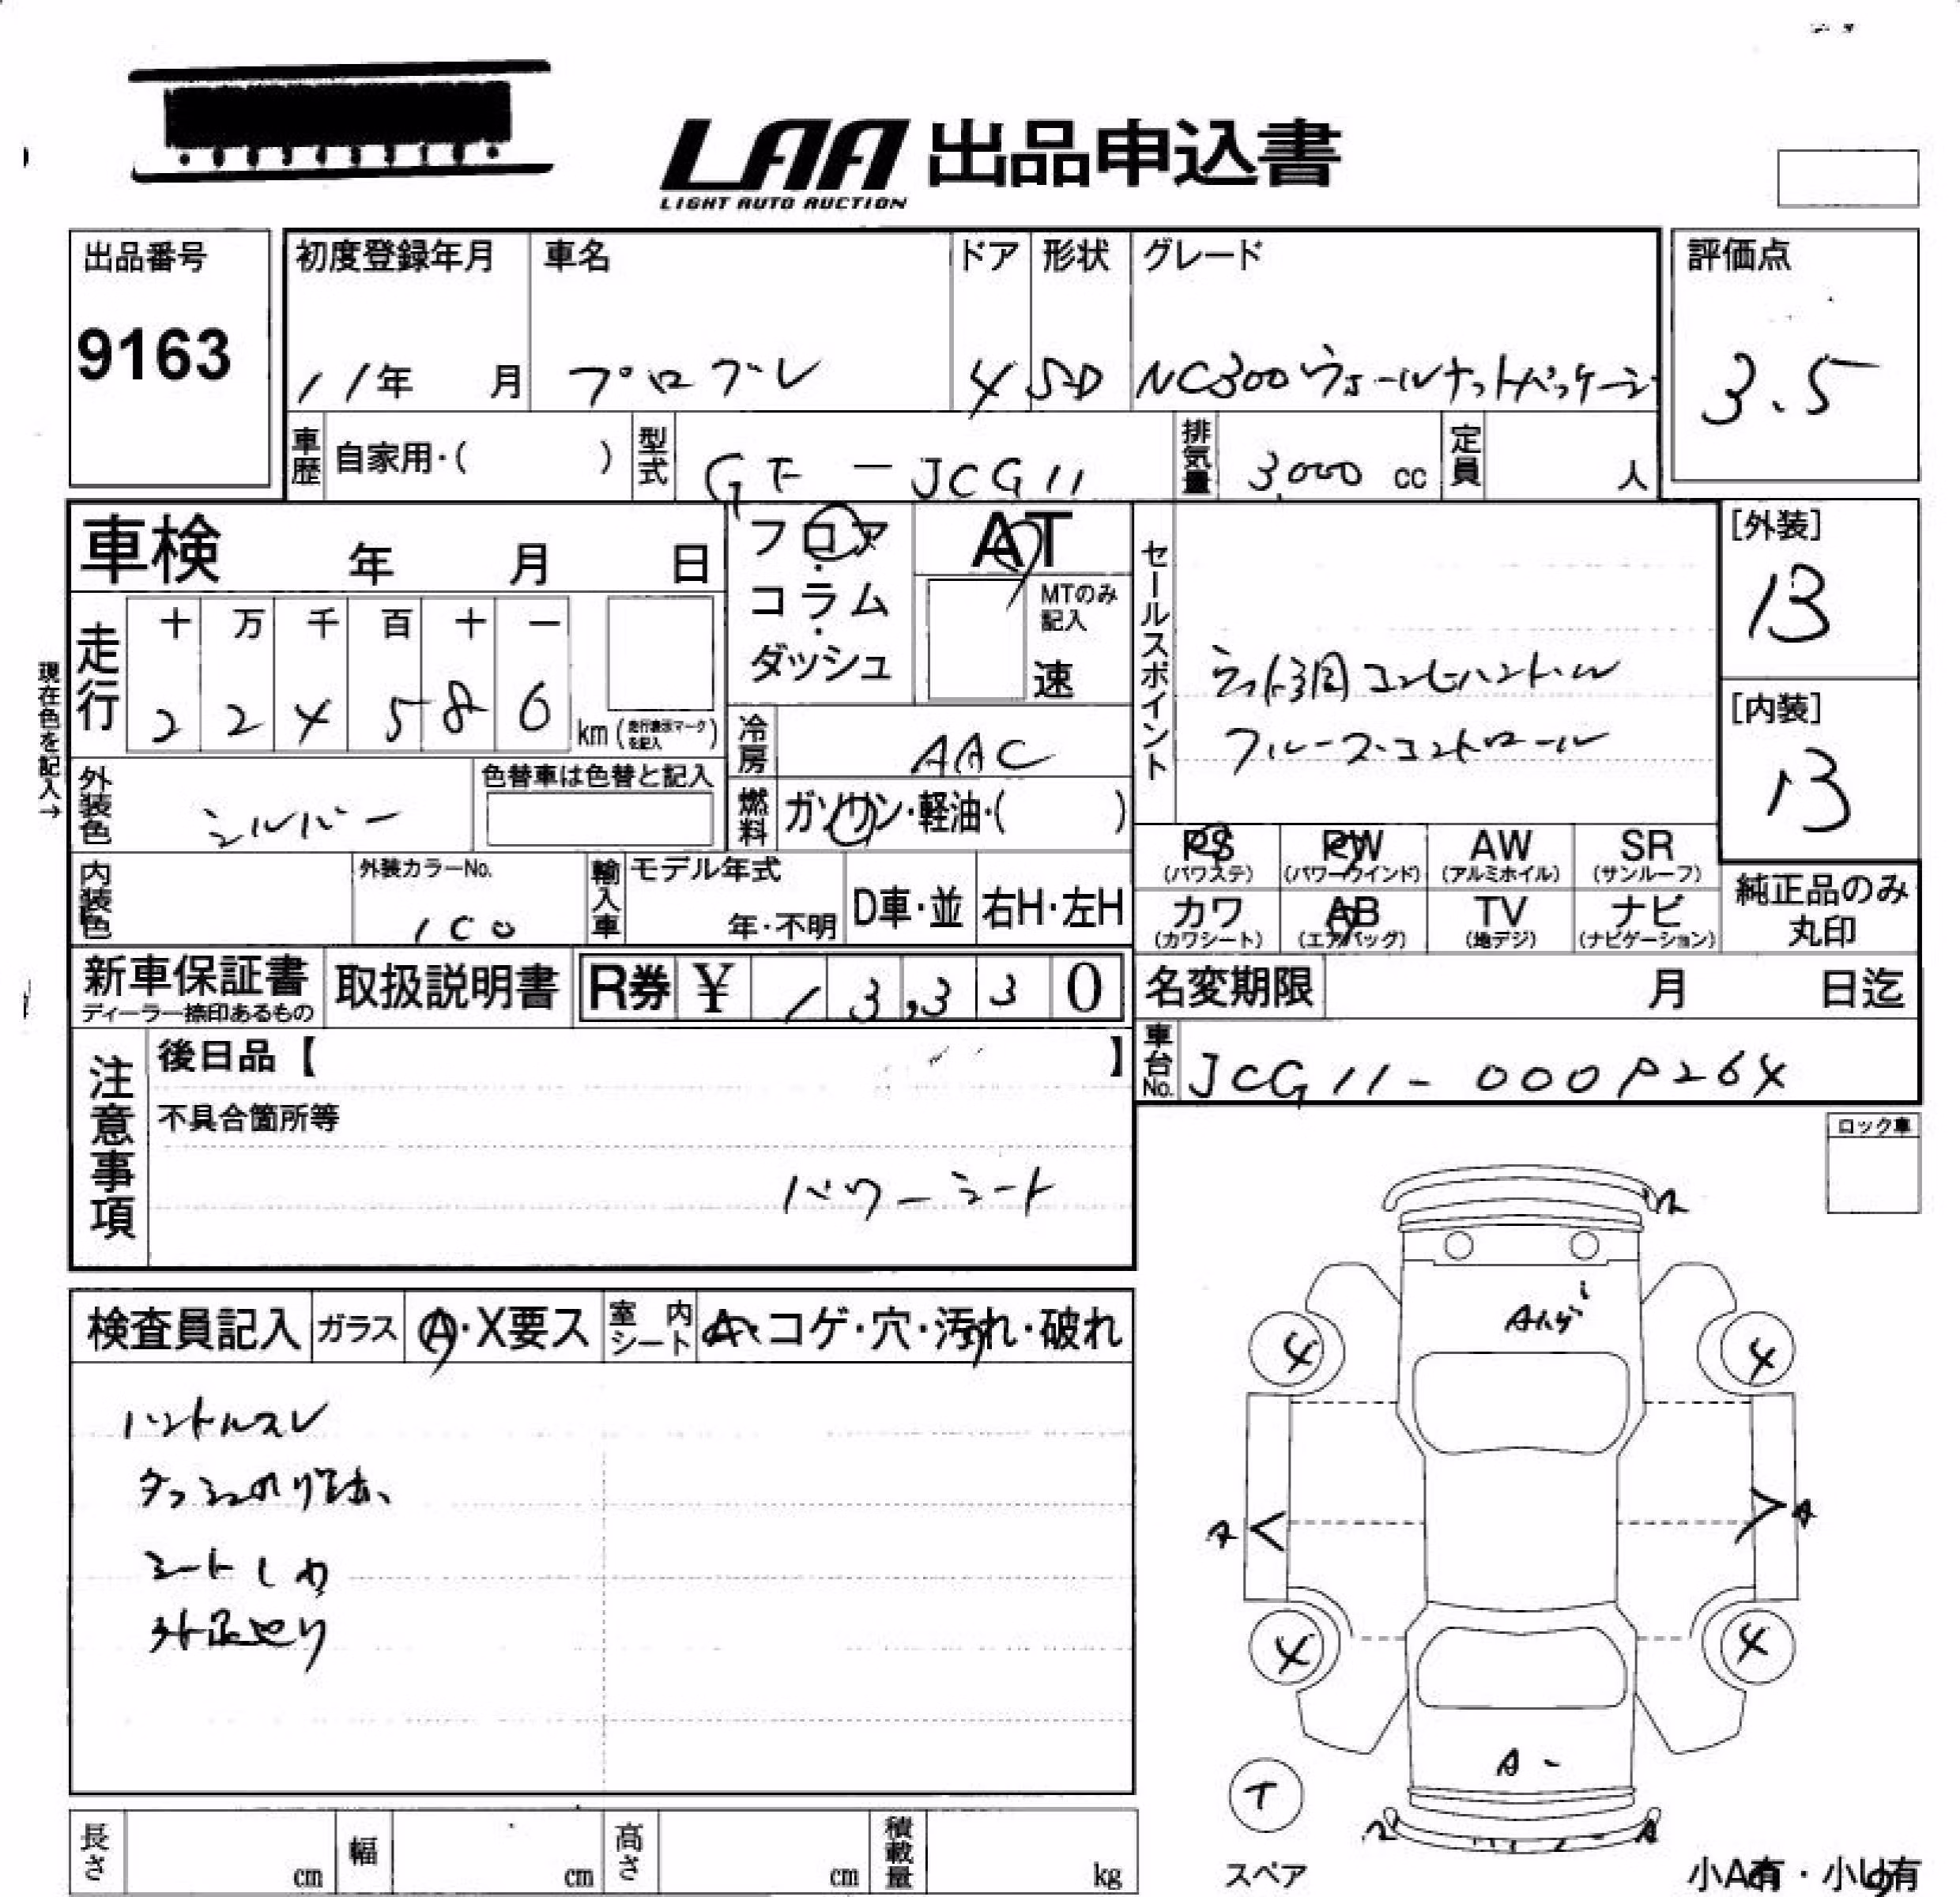 LAA 出品申込書
LIGHT AUTO AUCTION
出品番号 初度登録年月 車名 ドア 形状 グレード 評価点
9163 11年 月 プログレ 4 SD NC300ウォールナットパッケージ 3.5
車歴 自家用・( ) 型式 GF-JCG11 排気量 3000 cc 定員 人
車検 年 月 日 フロア・コラム・ダッシュ AT MTのみ記入 速
セールスポイント
ウッド調コンビハンドル
クルーズコントロール
[外装] B
[内装] B
現在色を記入→
走行 十 万 千 百 十 一
2 2 4 5 8 6 km(走行表示マークを記入)
冷房 AAC
外装色 シルバー 色替車は色替と記入
燃料 ガソリン・軽油・( )
PS (パワステ) PW (パワーウインド) AW (アルミホイル) SR (サンルーフ)
カワ (カワシート) AB (エアバッグ) TV (地デジ) ナビ (ナビゲーション)
純正品のみ丸印
内装色 外装カラーNo. 1C0 輸入車 モデル年式 年・不明 D車・並 右H・左H
新車保証書 ディーラー捺印あるもの 取扱説明書 R券 ¥ 13,330
名変期限 月 日迄
車台No. JCG11-000
注意事項 後日品【 】
不具合箇所等
パワーシート
ロック車
検査員記入 ガラス A・X要ス 室内シート A・コゲ・穴・汚れ・破れ
ハンドルスレ
ダッシュのり跡
シートしわ
A
4 4
4 4
A
スペア
長さ cm 幅 cm 高さ cm 積載量 kg
小A有・小U有